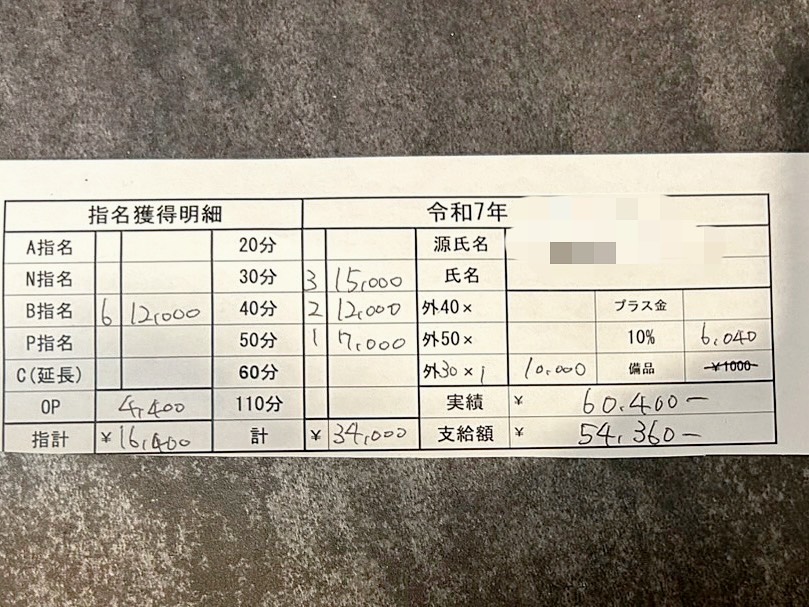 指名獲得明細 令和7年
A指名 20分 源氏名
N指名 30分 3 15,000 氏名
B指名 6 12,000 40分 2 12,000 外40× プラス金
P指名 50分 1 7,000 外50× 10% 6,040
C(延長) 60分 外30×1 10,000 備品 ¥1000
OP 4,400 110分 実績 ¥ 60.400-
指計 ¥16,400 計 ¥ 34,000 支給額 ¥ 54,360-